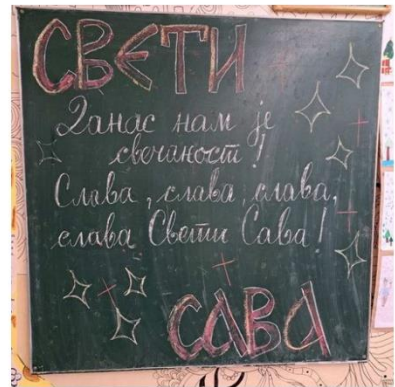 СВЕТИ
Данас нам је
свечаност!
Слава, слава, слава,
слава Свети Сава!
САВА